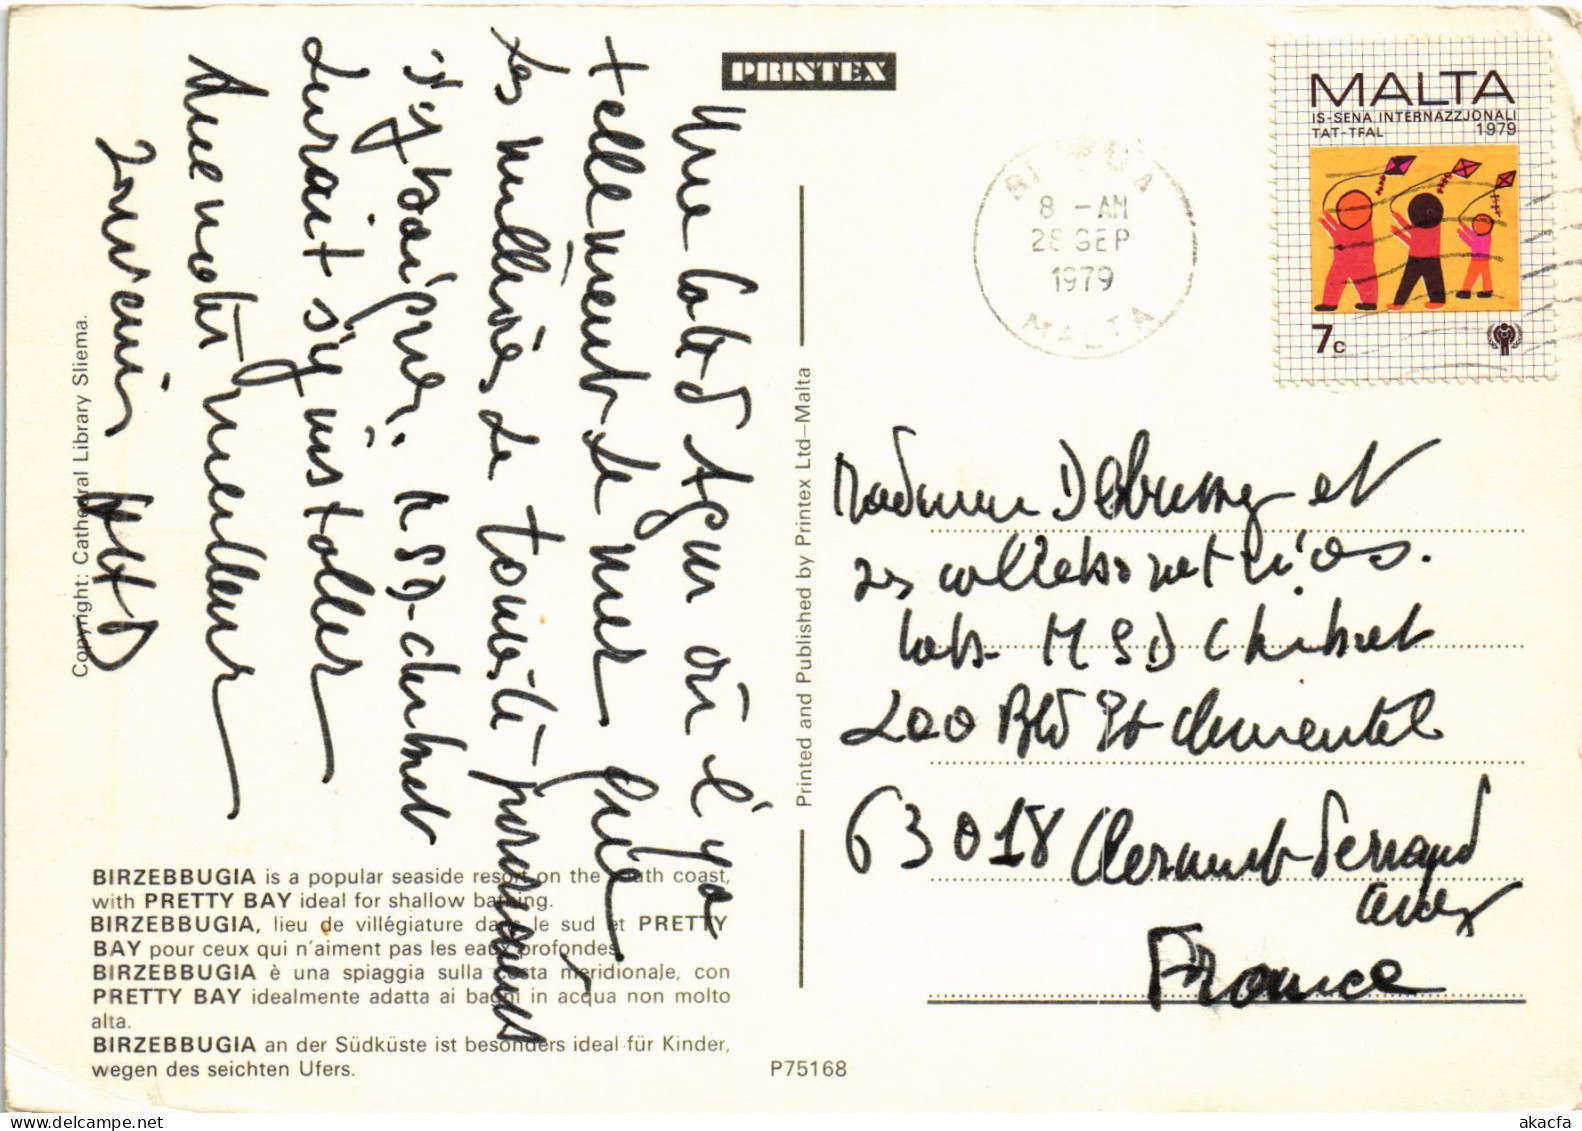 PRINTEX
Une côte d'Azur où l'ya
tellement de mer que
les milliers de touristes
s'y baigne. MSD-chibret
devrait s'y installer
Avec notre meilleur
souvenir
Copyright: Cathedral Library Sliema.
BIRZEBBUGIA is a popular seaside resort on the south coast,
with PRETTY BAY ideal for shallow bathing.
BIRZEBBUGIA, lieu de villégiature dans le sud et PRETTY
BAY pour ceux qui n'aiment pas les eaux profondes.
BIRZEBBUGIA è una spiaggia sulla costa meridionale, con
PRETTY BAY idealmente adatta ai bagni in acqua non molto
alta.
BIRZEBBUGIA an der Südküste ist besonders ideal für Kinder,
wegen des seichten Ufers.
Printed and Published by Printex Ltd–Malta
P75168
8 -AM
28 SEP
1979
MALTA
MALTA
IS-SENA INTERNAZZJONALI
TAT-TFAL 1979
7c
Madame Debussy et
ses collaboratrices.
Labs MSD Chibret
200 Bld Et Clementel
63018 Clermont-Ferrand
cedex
France
akacfa